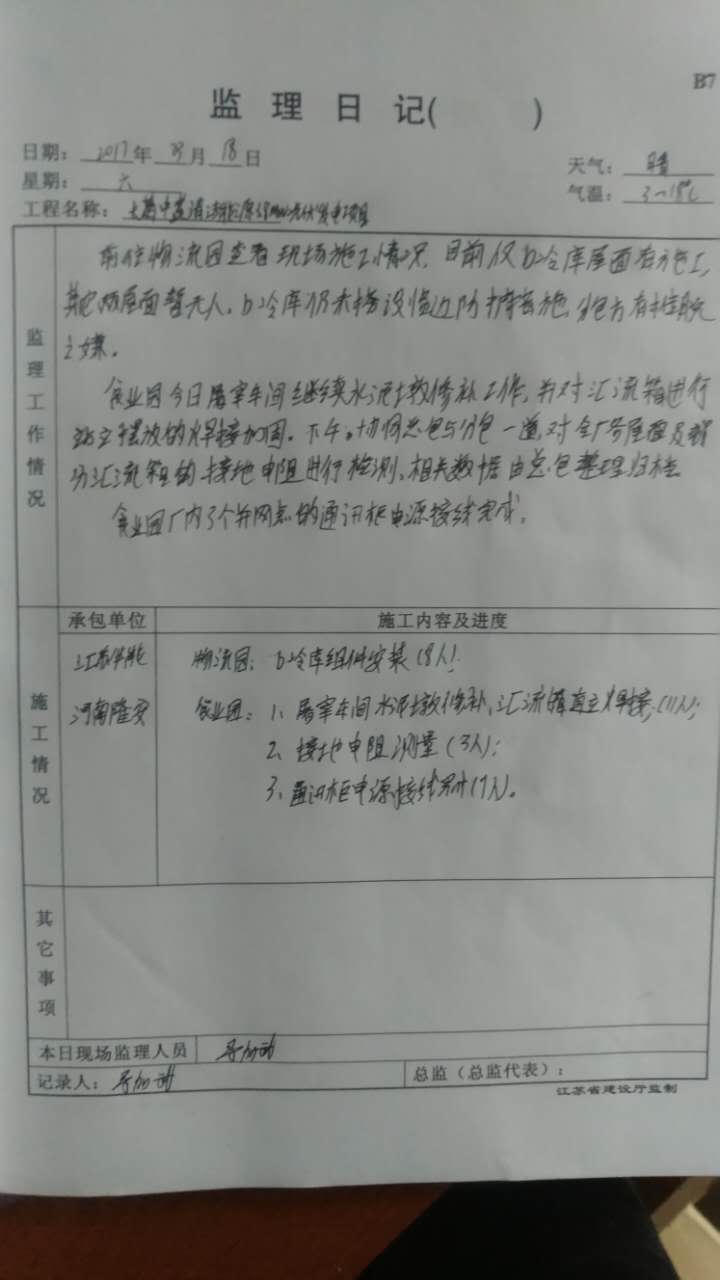 B7
监理日记( )
日期: 2017年 03月 18日
天气: 晴
星期: 六
气温: 3~18℃
工程名称:
监理工作情况
前往物流园查看现场施工情况,目前仅b冷库屋面在施工,
其它两屋面暂无人。b冷库仍未搭设临边防护措施,分包方有
之嫌。
食业园今日屠宰车间继续水泥墩修补工作,并对汇流箱进行
摆放的焊接加固。下午,协同总包与分包一道,对全厂各屋面及部
分汇流箱的接地电阻进行检测,相关数据由总包整理归档。
食业园厂内3个并网点的通讯柜电源接线完成。
承包单位
施工内容及进度
施工情况
江苏
物流园: b冷库组件安装(8人);
河南隆安
食业园: 1、屠宰车间水泥墩修补、汇流箱直立焊接;(11人);
2、接地电阻测量(3人);
3、通讯柜电源接线(7人)。
其它事项
本日现场监理人员
记录人:
总监(总监代表):
江苏省建设厅监制